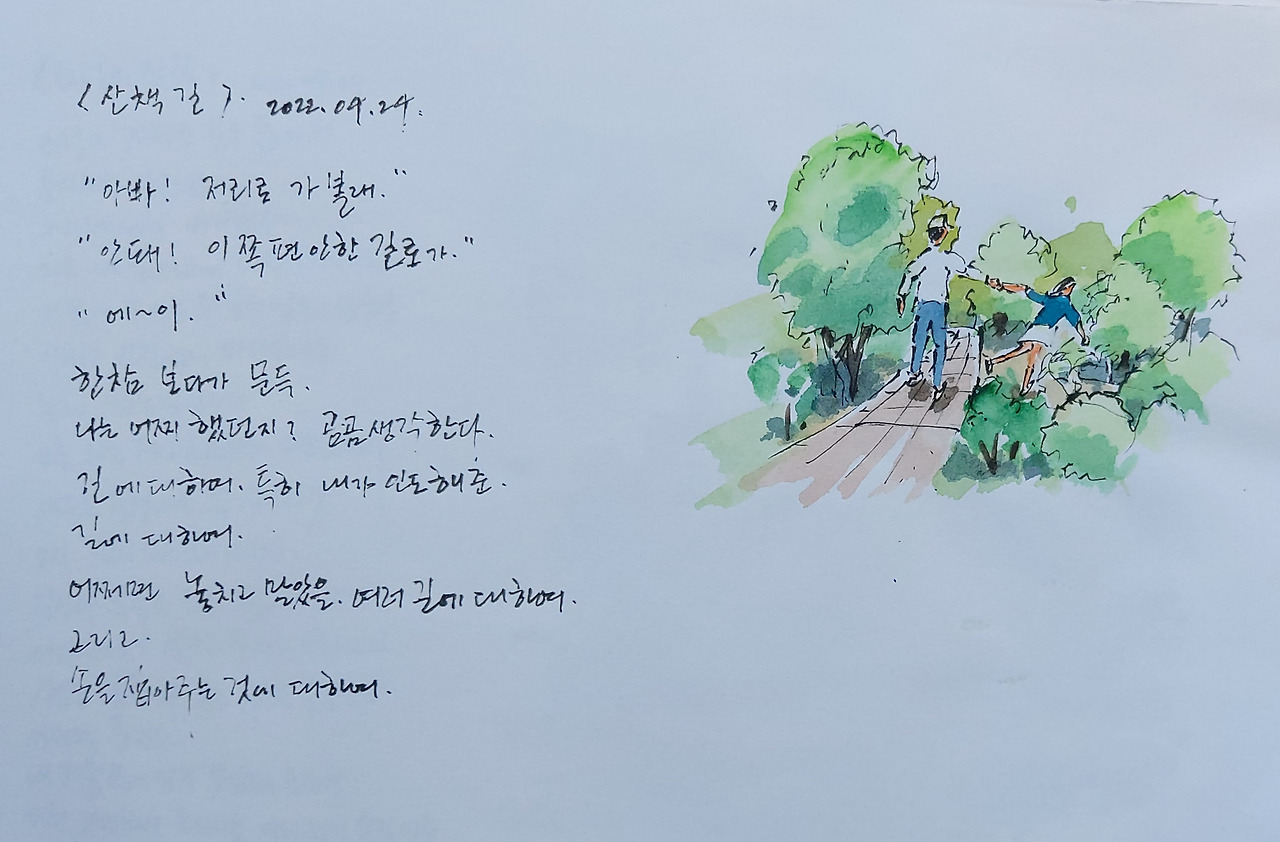 <산책길>. 2022. 04. 24.
"아빠! 저리로 가 볼래."
"안돼! 이쪽 편안한 길로 가."
"에~이."
한참 보다가 문득.
나는 어찌 했던지? 곰곰 생각한다.
길에 대하여. 특히 내가 인도해 준.
길에 대하여.
어쩌면 놓치고 말았을. 여러 길에 대하여.
그리고.
손을 잡아주는 것에 대하여.